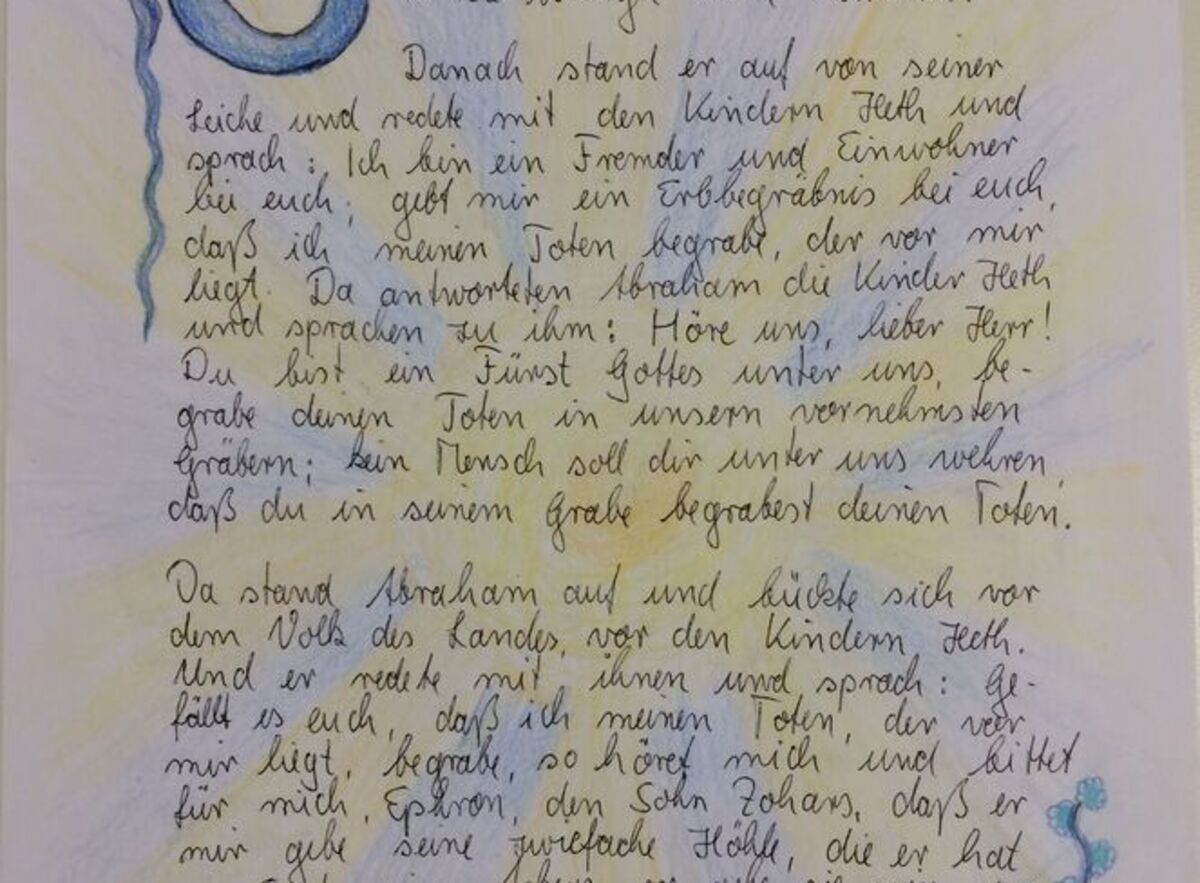 Danach stand er auf von seiner
Leiche und redete mit den Kindern Heth und
sprach: Ich bin ein Fremder und Einwohner
bei euch; gebt mir ein Erbbegräbnis bei euch,
daß ich meinen Toten begrabe, der vor mir
liegt. Da antworteten Abraham die Kinder Heth
und sprachen zu ihm: Höre uns, lieber Herr!
Du bist ein Fürst Gottes unter uns, be-
grabe deinen Toten in unsern vornehmsten
Gräbern; kein Mensch soll dir unter uns wehren,
daß du in seinem Grabe begrabest deinen Toten.
Da stand Abraham auf und bückte sich vor
dem Volk des Landes, vor den Kindern Heth.
Und er redete mit ihnen und sprach: Ge-
fällt es euch, daß ich meinen Toten, der vor
mir liegt, begrabe, so höret mich und bittet
für mich Ephron, den Sohn Zohars, daß er
mir gebe seine zwiefache Höhle, die er hat